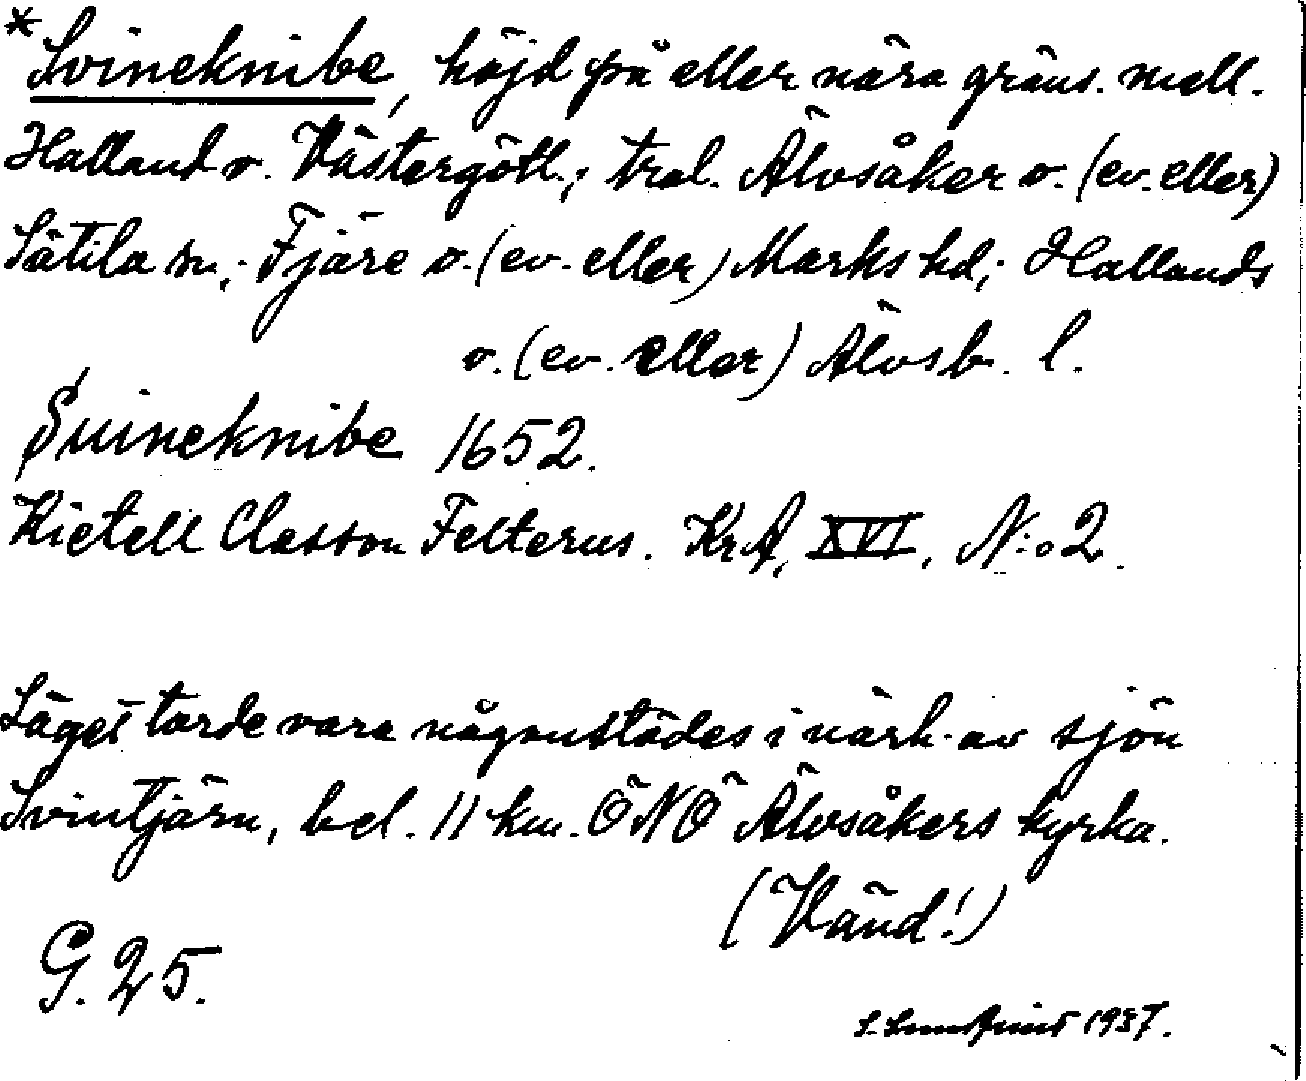 *Svineknibe, höjd på eller nära gräns. mell.
Halland o. Västergötl.; trol. Älvsåker o. (ev. eller)
Sätila sn.; Fjäre o. (ev. eller) Marks hd; Hallands
o. (ev. eller) Älvsb. l.
Suineknibe 1652.
Kietell Classon Felterus. KrA, XVI, N:o 2.
Läget torde vara någonstädes i närh. av sjön
Svintjärn, bel. 11 km. ÖNÖ Älvsåkers kyrka.
(Vänd!)
G. 25.
1937.